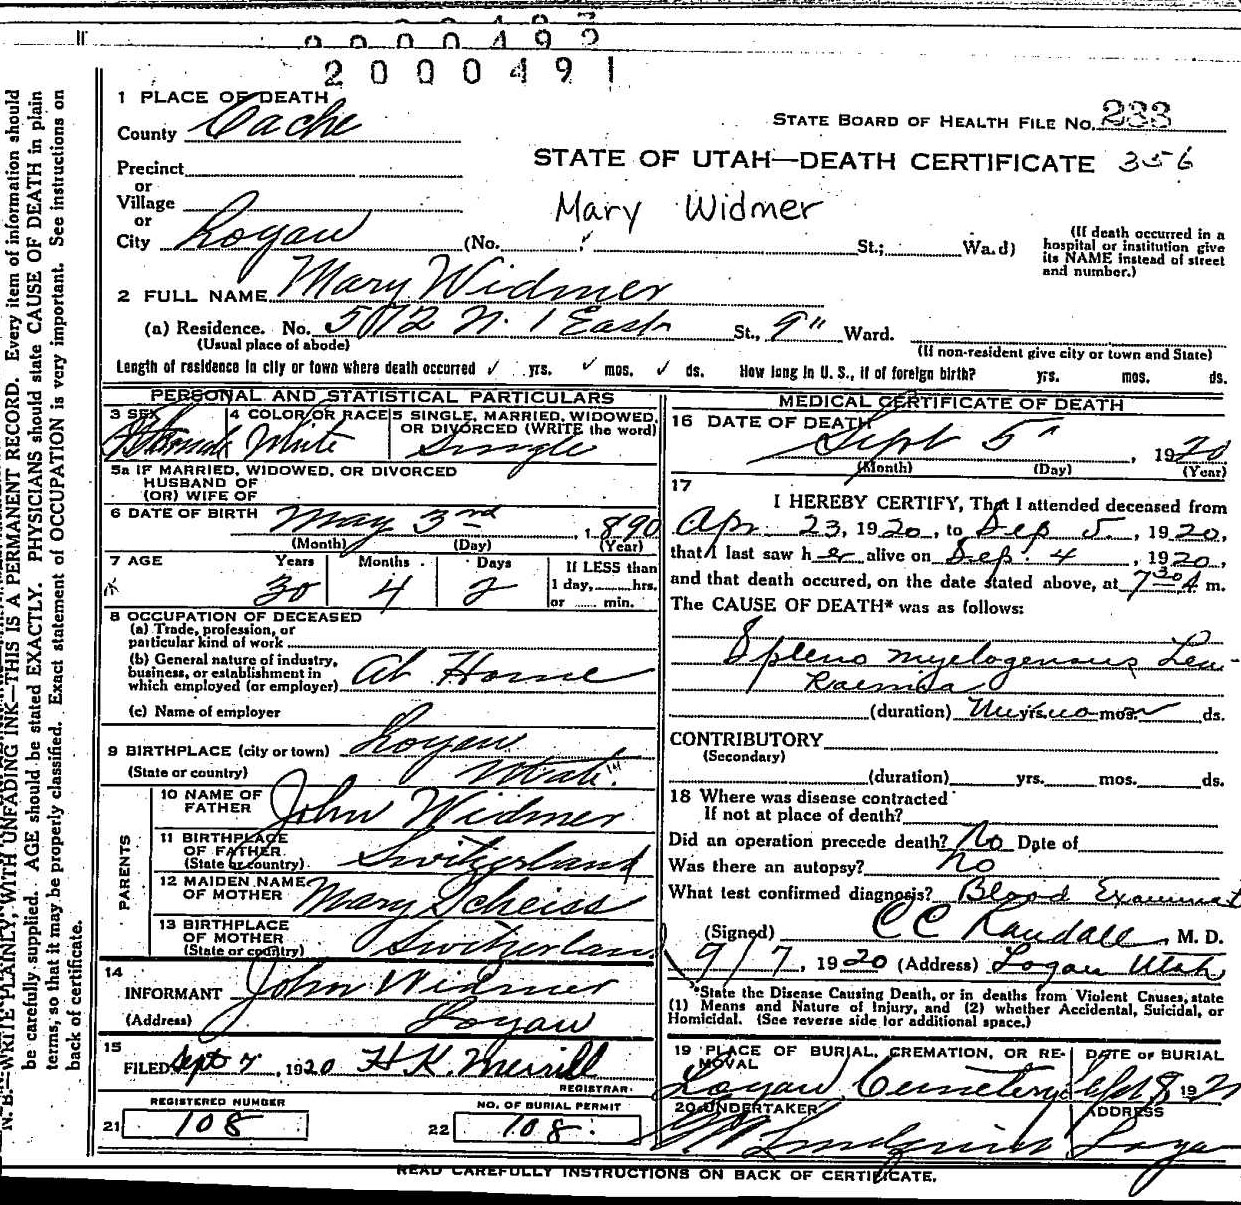 2000491
1 PLACE OF DEATH
County Cache
STATE BOARD OF HEALTH FILE No. 233
STATE OF UTAH—DEATH CERTIFICATE 356
Precinct
or
Village
or
City Logan
Mary Widmer
(No. St.; Ward)
(If death occurred in a
hospital or institution give
its NAME instead of street
and number.)
2 FULL NAME Mary Widmer
(a) Residence. No. 5072 N. 1 East St., 9" Ward.
(Usual place of abode)
(If non-resident give city or town and State)
Length of residence in city or town where death occurred ✓ yrs. ✓ mos. ✓ ds. How long in U. S., if of foreign birth? yrs. mos. ds.
PERSONAL AND STATISTICAL PARTICULARS
3 SEX Female
4 COLOR OR RACE White
5 SINGLE, MARRIED, WIDOWED,
OR DIVORCED (WRITE the word)
Single
5a IF MARRIED, WIDOWED, OR DIVORCED
HUSBAND OF
(OR) WIFE OF
6 DATE OF BIRTH May 3rd, 1890
(Month) (Day) (Year)
7 AGE Years Months Days If LESS than
30 4 2 1 day, hrs.
or min.
8 OCCUPATION OF DECEASED
(a) Trade, profession, or
particular kind of work
(b) General nature of industry,
business, or establishment in
which employed (or employer) At Home
(c) Name of employer
9 BIRTHPLACE (city or town) Logan
(State or country) Utah
PARENTS
10 NAME OF
FATHER John Widmer
11 BIRTHPLACE
OF FATHER
(State or country) Switzerland
12 MAIDEN NAME
OF MOTHER Mary Scheiss
13 BIRTHPLACE
OF MOTHER
(State or country) Switzerland
14
INFORMANT John Widmer
(Address) Logan
15
FILED Sept 7, 1920 H K Merrill
REGISTRAR.
REGISTERED NUMBER
21 108
NO. OF BURIAL PERMIT
22 108
MEDICAL CERTIFICATE OF DEATH
16 DATE OF DEATH
Sept 5", 1920
(Month) (Day) (Year)
17
I HEREBY CERTIFY, That I attended deceased from
Apr 23, 1920, to Sep 5, 1920,
that I last saw her alive on Sep. 4, 1920,
and that death occured, on the date stated above, at 7 30 A m.
The CAUSE OF DEATH* was as follows:
Spleno myelogenous Leu-
kaemia
(duration) Unknown yrs. mos. ds.
CONTRIBUTORY
(Secondary)
(duration) yrs. mos. ds.
18 Where was disease contracted
If not at place of death?
Did an operation precede death? No Date of
Was there an autopsy? No
What test confirmed diagnosis? Blood Examinat
(Signed) CC Randall, M. D.
9/7, 1920 (Address) Logan Utah
*State the Disease Causing Death, or in deaths from Violent Causes, state
(1) Means and Nature of Injury, and (2) whether Accidental, Suicidal, or
Homicidal. (See reverse side for additional space.)
19 PLACE OF BURIAL, CREMATION, OR RE-
MOVAL
Logan Cemetery
DATE OF BURIAL
Sept 8 192
20 UNDERTAKER
ADDRESS
Logan
READ CAREFULLY INSTRUCTIONS ON BACK OF CERTIFICATE.
N. B.—WRITE PLAINLY, WITH UNFADING INK—THIS IS A PERMANENT RECORD. Every item of information should
be carefully supplied. AGE should be stated EXACTLY. PHYSICIANS should state CAUSE OF DEATH in plain
terms, so that it may be properly classified. Exact statement of OCCUPATION is very important. See instructions on
back of certificate.